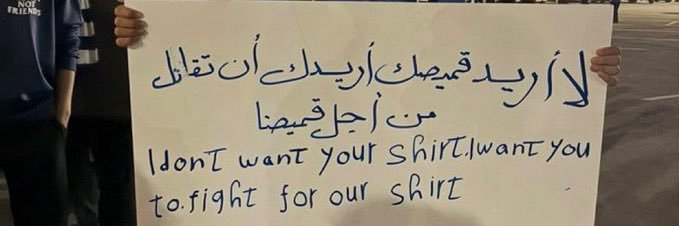 NOT
FRIENDS
لا أريد قميصك أريدك أن تقاتل
من أجل قميصنا
I dont want your shirt.I want you
to.fight for our shirt